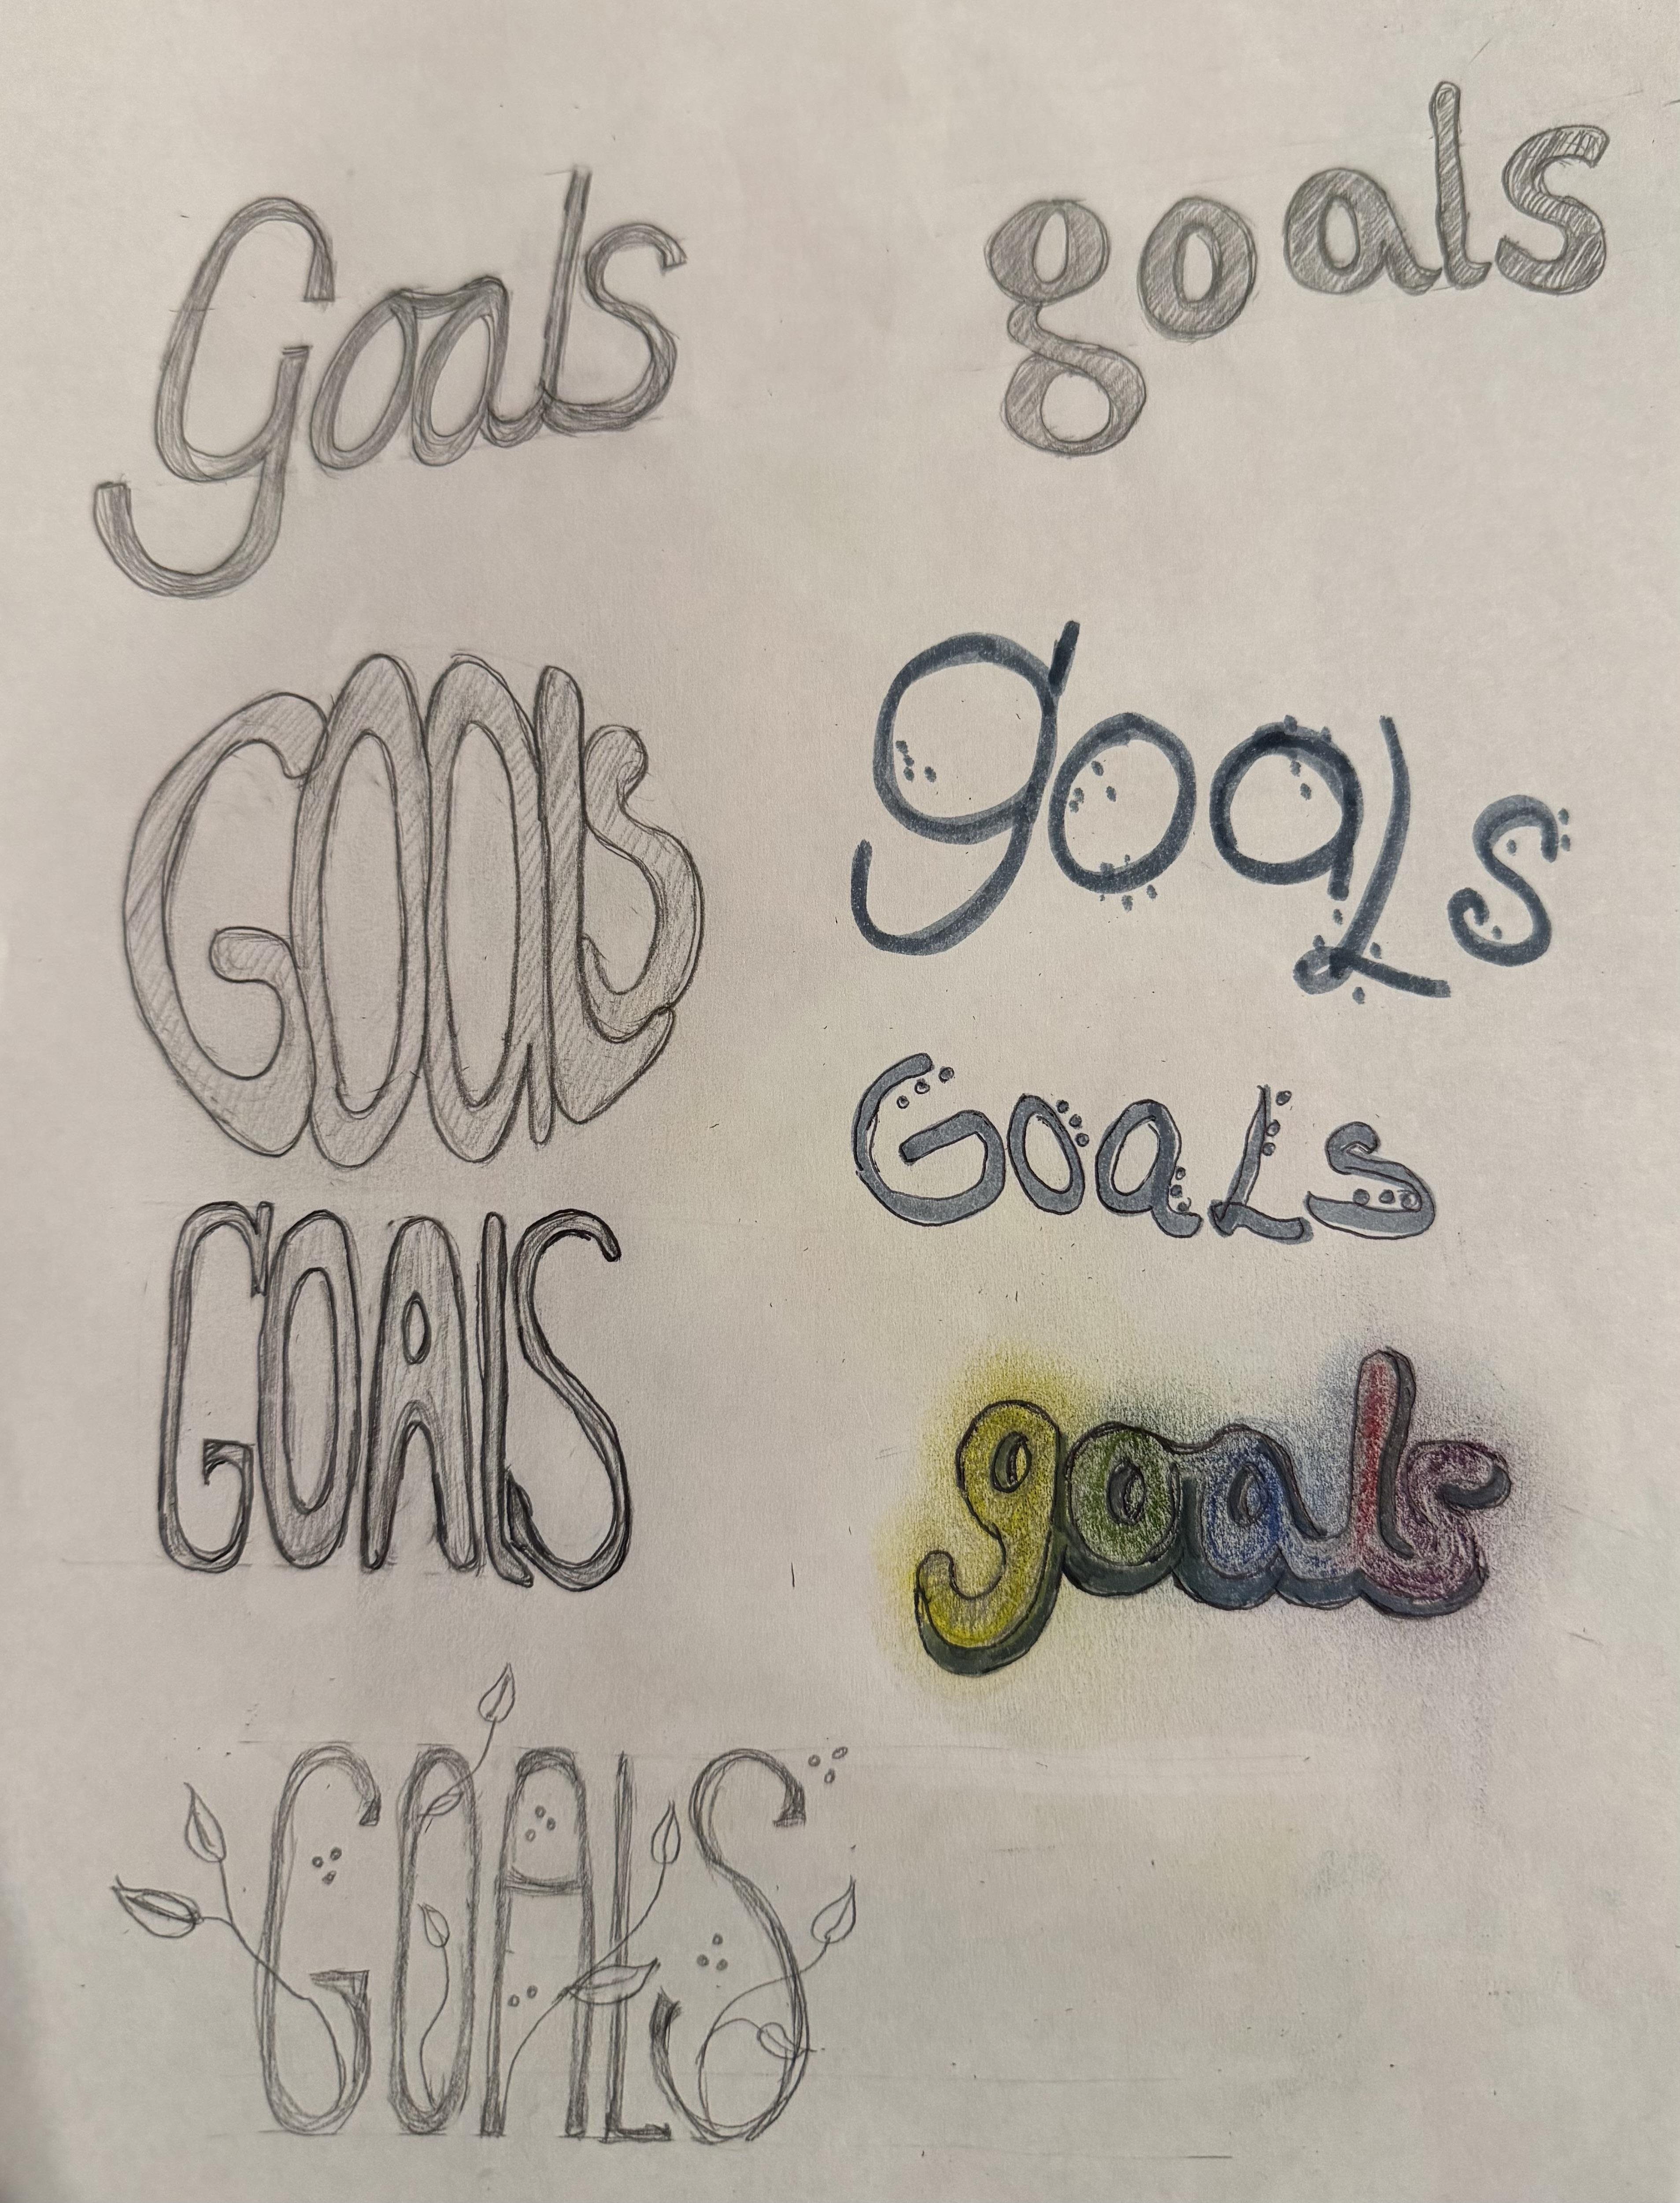 Goals
goals
GOALS
goaLs
GOALS
GoaLs
goals
GOALS